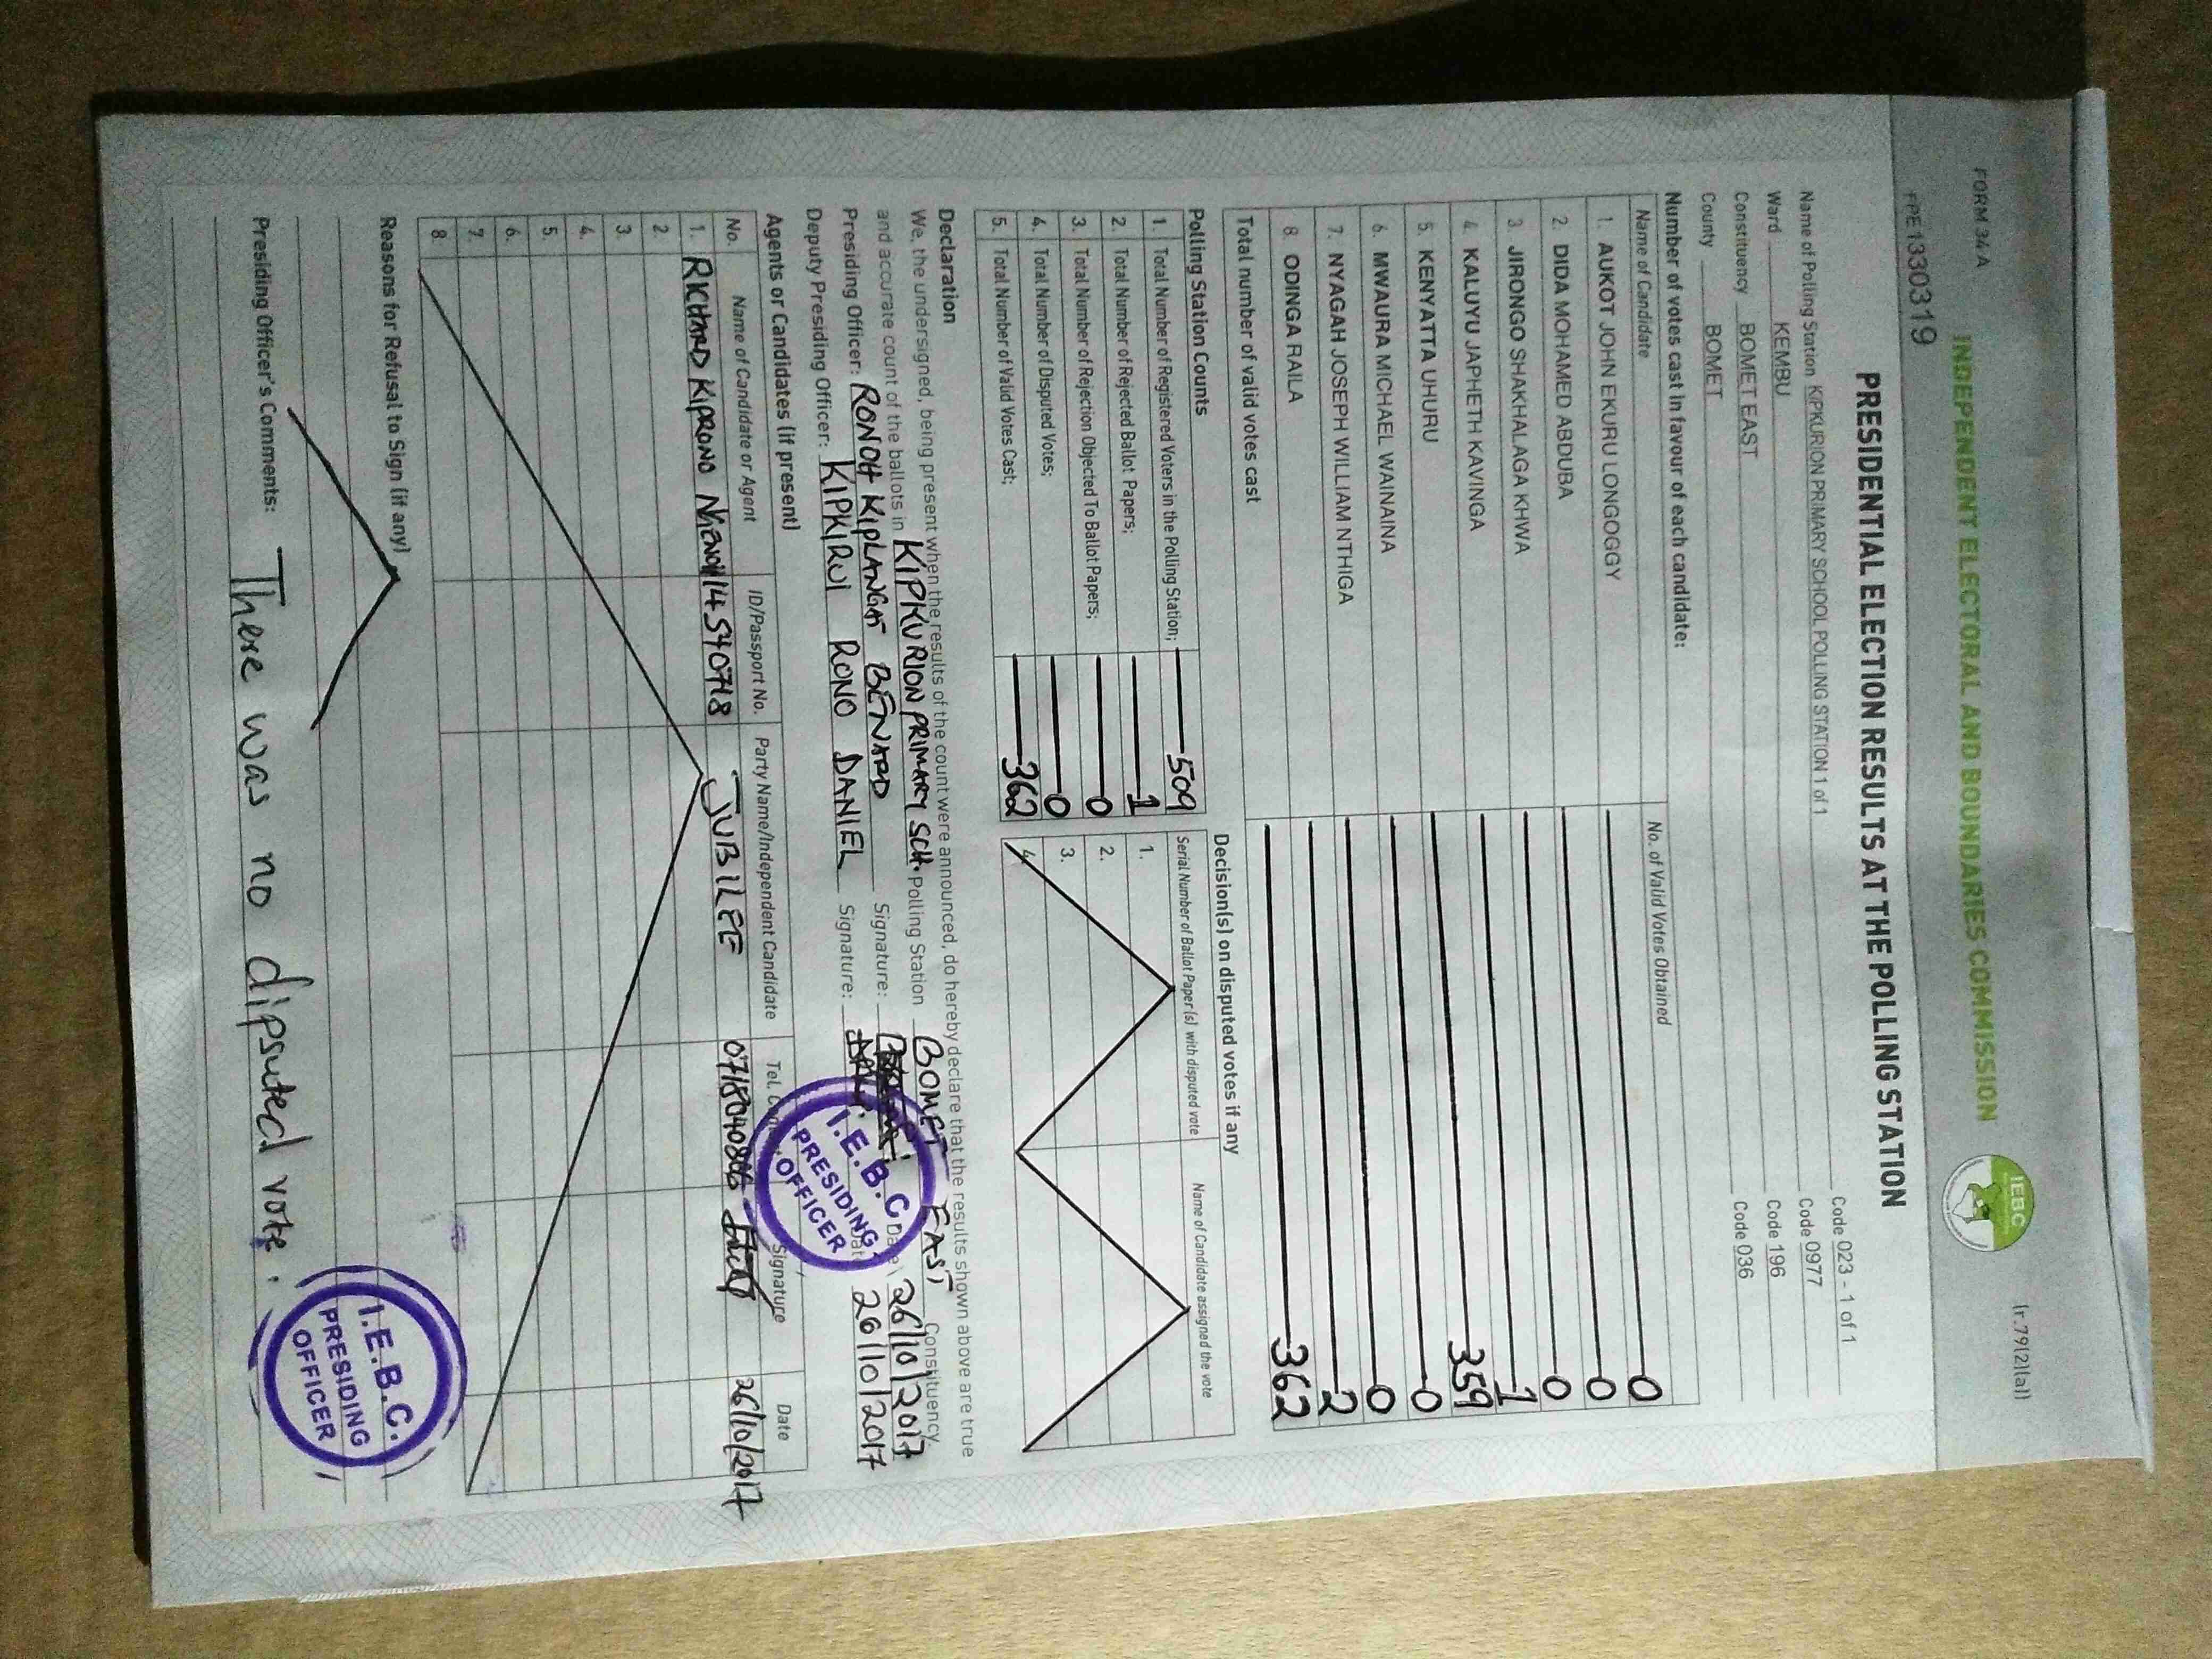 FORM 34A
(r.79(2)(a))
INDEPENDENT ELECTORAL AND BOUNDARIES COMMISSION
IEBC
PRE1330319
PRESIDENTIAL ELECTION RESULTS AT THE POLLING STATION
Name of Polling Station KIPKURION PRIMARY SCHOOL POLLING STATION 1 of 1 Code 023 - 1 of 1
Ward KEMBU Code 0977
Constituency BOMET EAST Code 196
County BOMET Code 036
Number of votes cast in favour of each candidate:
Name of Candidate No. of Valid Votes Obtained
1. AUKOT JOHN EKURU LONGOGGY 0
2. DIDA MOHAMED ABDUBA 0
3 JIRONGO SHAKHALAGA KHWA 0
4. KALUYU JAPHETH KAVINGA 1
5. KENYATTA UHURU 359
6. MWAURA MICHAEL WAINAINA 0
7. NYAGAH JOSEPH WILLIAM NTHIGA 0
8. ODINGA RAILA 2
Total number of valid votes cast 362
Polling Station Counts
1. Total Number of Registered Voters in the Polling Station; 509
2. Total Number of Rejected Ballot Papers; 1
3. Total Number of Rejection Objected To Ballot Papers; 0
4. Total Number of Disputed Votes; 0
5. Total Number of Valid Votes Cast; 362
Decision(s) on disputed votes if any
Serial Number of Ballot Paper(s) with disputed vote Name of Candidate assigned the vote
1.
2.
3.
4.
Declaration
We, the undersigned, being present when the results of the count were announced, do hereby declare that the results shown above are true
and accurate count of the ballots in KIPKURION PRIMARY SCH. Polling Station BOMET EAST Constituency.
Presiding Officer: RONOH KIPLANGAT BENARD Signature: Date 26/10/2017
Deputy Presiding Officer: KIPKIRUI RONO DANIEL Signature: Date 26/10/2017
I.E.B.C
PRESIDING
OFFICER
Agents or Candidates (if present)
No. Name of Candidate or Agent ID/Passport No. Party Name/Independent Candidate Tel. Signature Date
1. RICHARD KIPRONO 14540718 JUBILEE 26/10/2017
2.
3.
4.
5.
6.
7.
8.
Reasons for Refusal to Sign (if any)
Presiding Officer's Comments: There was no dipsuted vote.
I.E.B.C.
PRESIDING
OFFICER